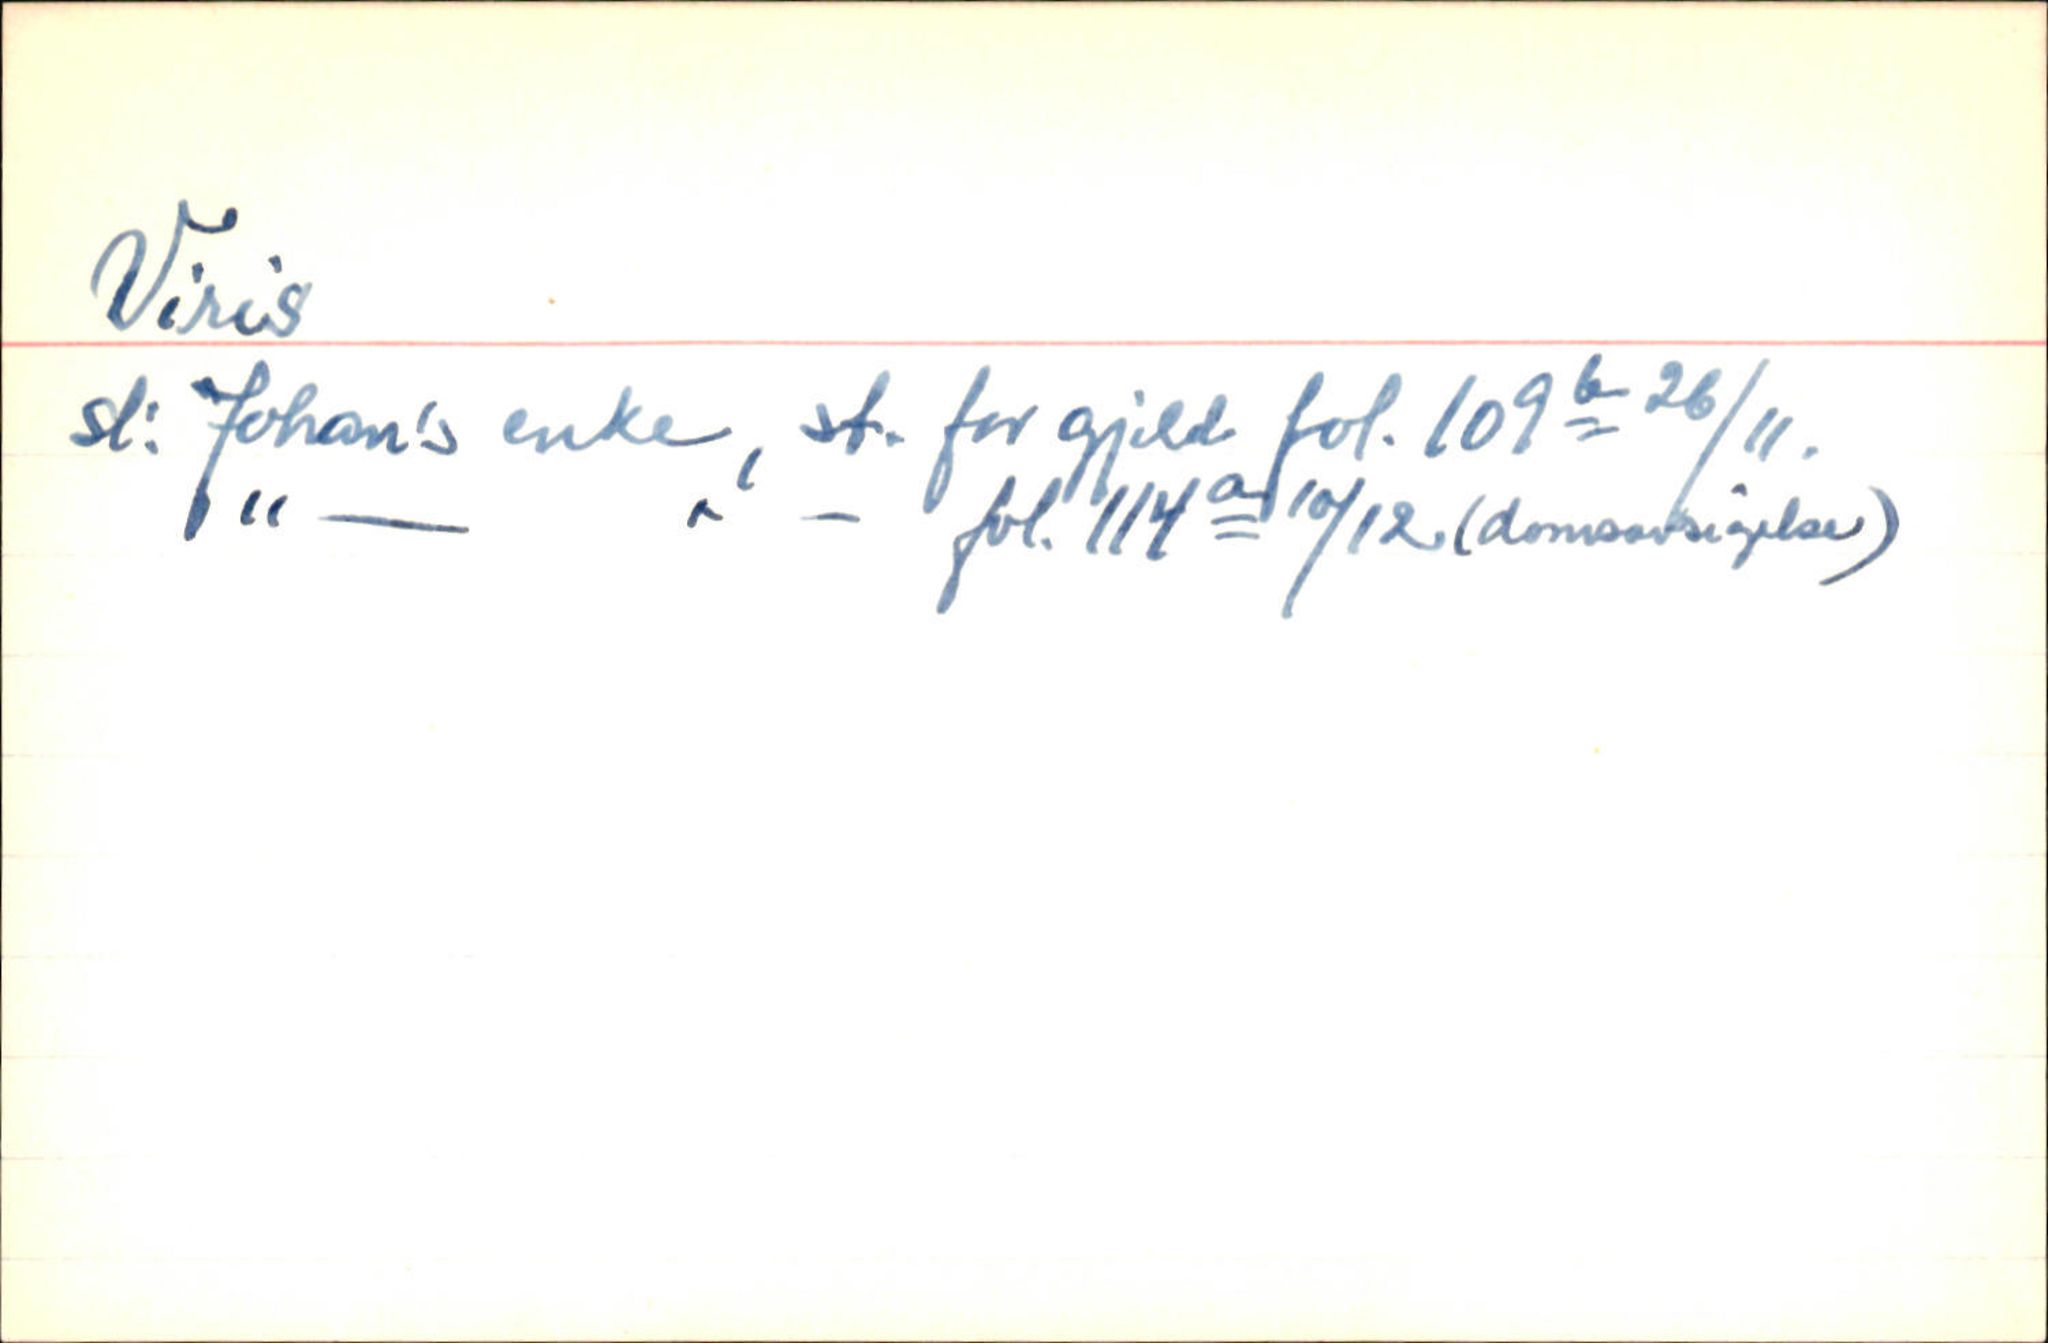 Viris
sl: Johan's enke, st. for gjeld fol. 109 b 26/11.
" — " — fol. 114 a 10/12 (domsavsigelse)